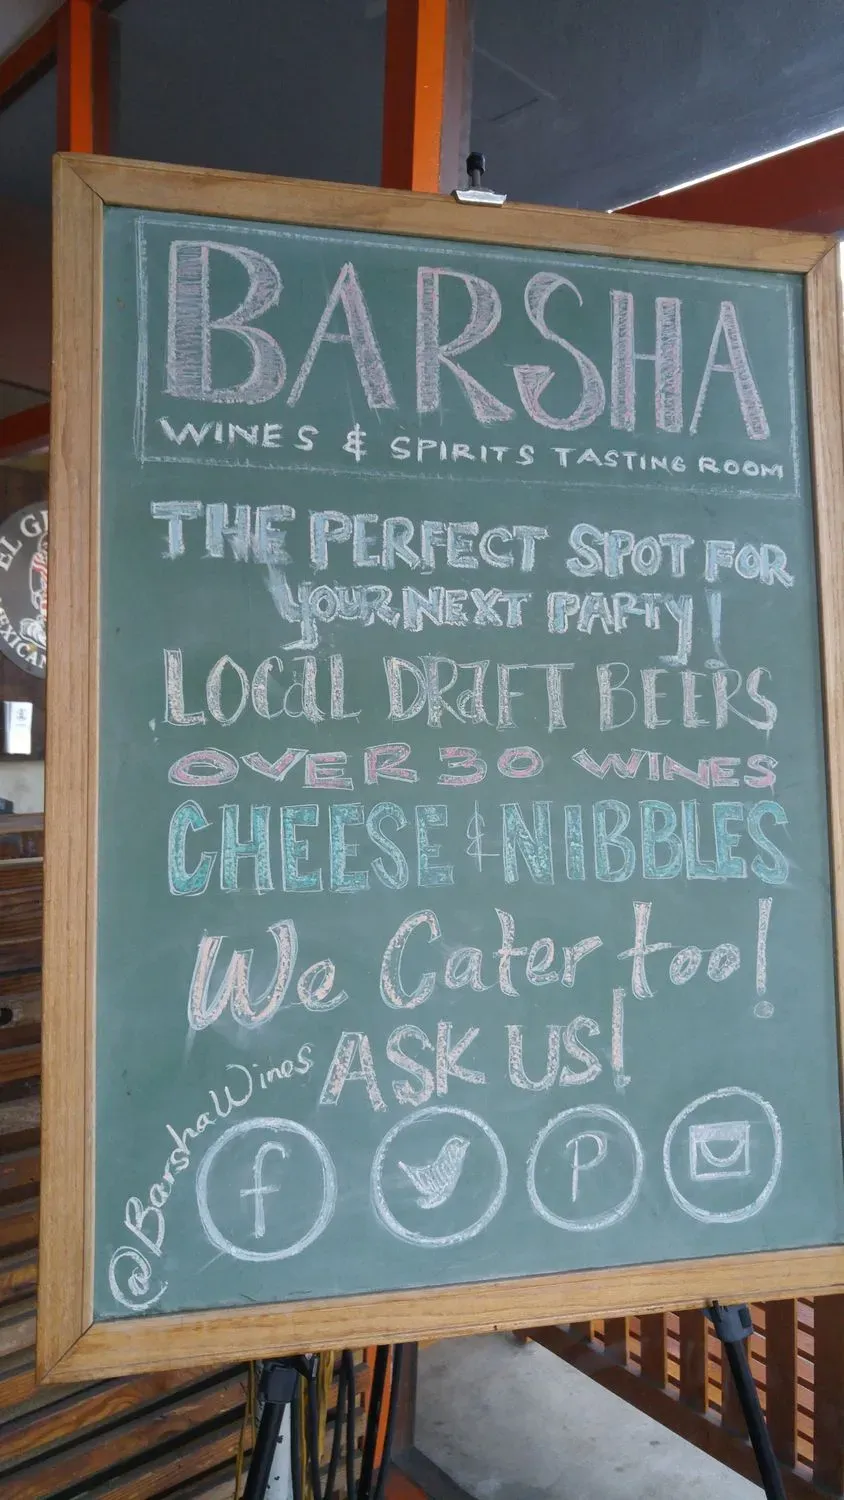 BARSHA
WINES & SPIRITS TASTING ROOM
THE PERFECT SPOT FOR
YOUR NEXT PARTY!
LOCAL DRAFT BEERS
OVER 30 WINES
CHEESE & NIBBLES
We Cater too!
ASK US!
@BarshaWines
f
P
EL G
MEXICAN